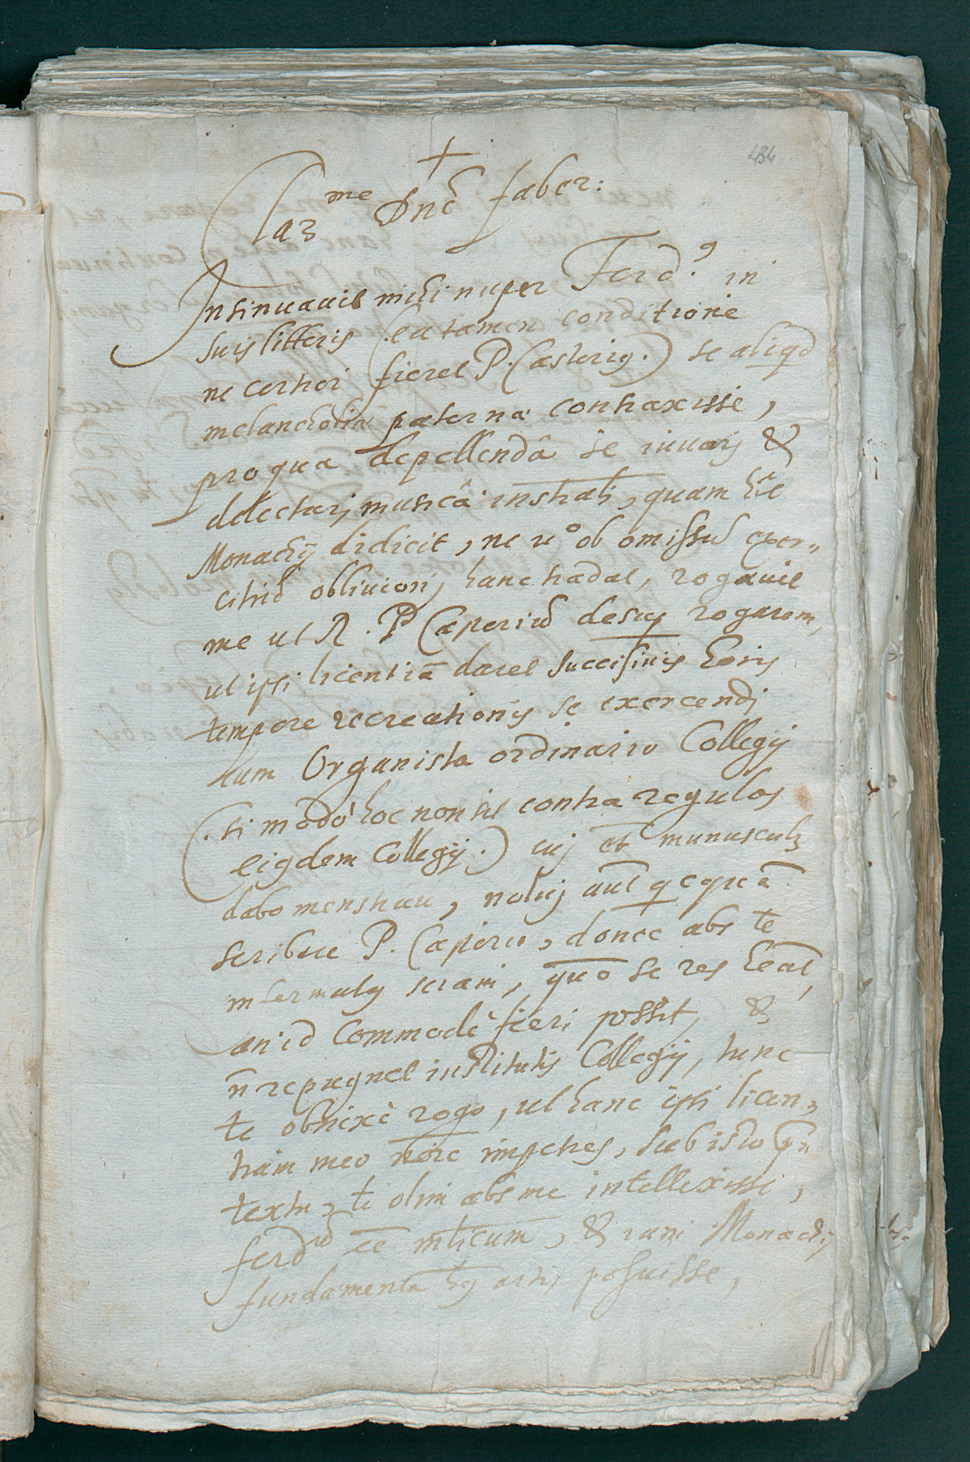 434
+
Clar.me Dne faber:
Insinuavit mihi nuper Ferd.9 in
suis litteris (ea tamen conditione
ne certior fieret P. Casterig.) se aliqd
melancholia paterna contraxisse,
pro qua depellendâ se iuvarj &
delectarj musicâ instrāli, quam hîc
Monachij didicit, ne v° ob omissū exer„
citiū oblivionj hanc tradat, rogavit
me ut R. P. Caperiū desup rogarem,
ut ipsi licentiā daret succisivis horis
tempore recreationis se exercendj
cum Organista ordinario Collegij
(.si modò hoc non sit contra regulas
eigdem Collegij.) cuj et munusculū
dabo menstruū, noluj aut qcquā
scribere P. Caperio, donec abs te
informatus sciam, quō se res heāt,
an id commodè fieri possit, &
n̄ repugnet institutis Collegij, tunc
te obnixè rogo, ut hanc ipsi licen„
tiam meo noīe impetres, sub isto prae
textu, te olim abs me intellexisse,
ferdū eē m̄licum, & iam Monachij
fundamenta hj artis posuisse,